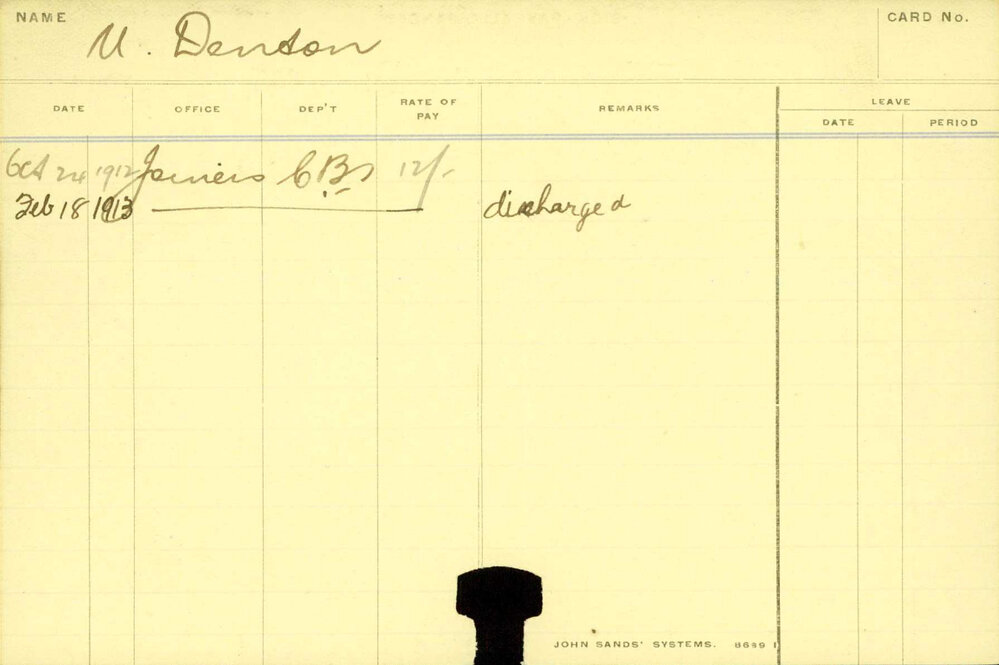 NAME U. Denson CARD No.
DATE OFFICE DEP'T RATE OF PAY REMARKS LEAVE
DATE PERIOD
Oct 24 1912 Joiners CBs 12/-
Feb 18 1913 discharged
JOHN SANDS' SYSTEMS. 8689